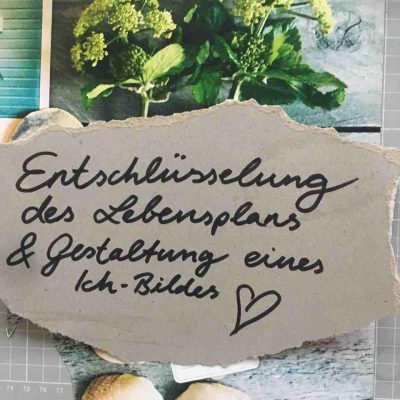 Entschlüsselung
des Lebensplans
& Gestaltung eines
Ich-Bildes ♡
74 75 76 77